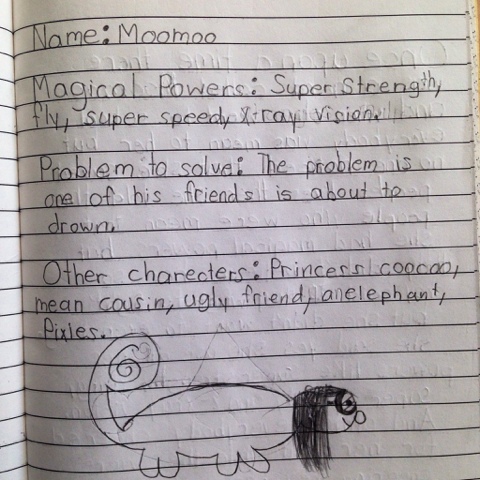 Name: Moomoo
Magical Powers: Super Strength,
fly, super speed, X-ray Vision.
Problem to solve: The problem is
one of his friends is about to
drown.
Other charecters: Princess coocoo,
mean cousin, ugly friend, an elephant,
Pixies.